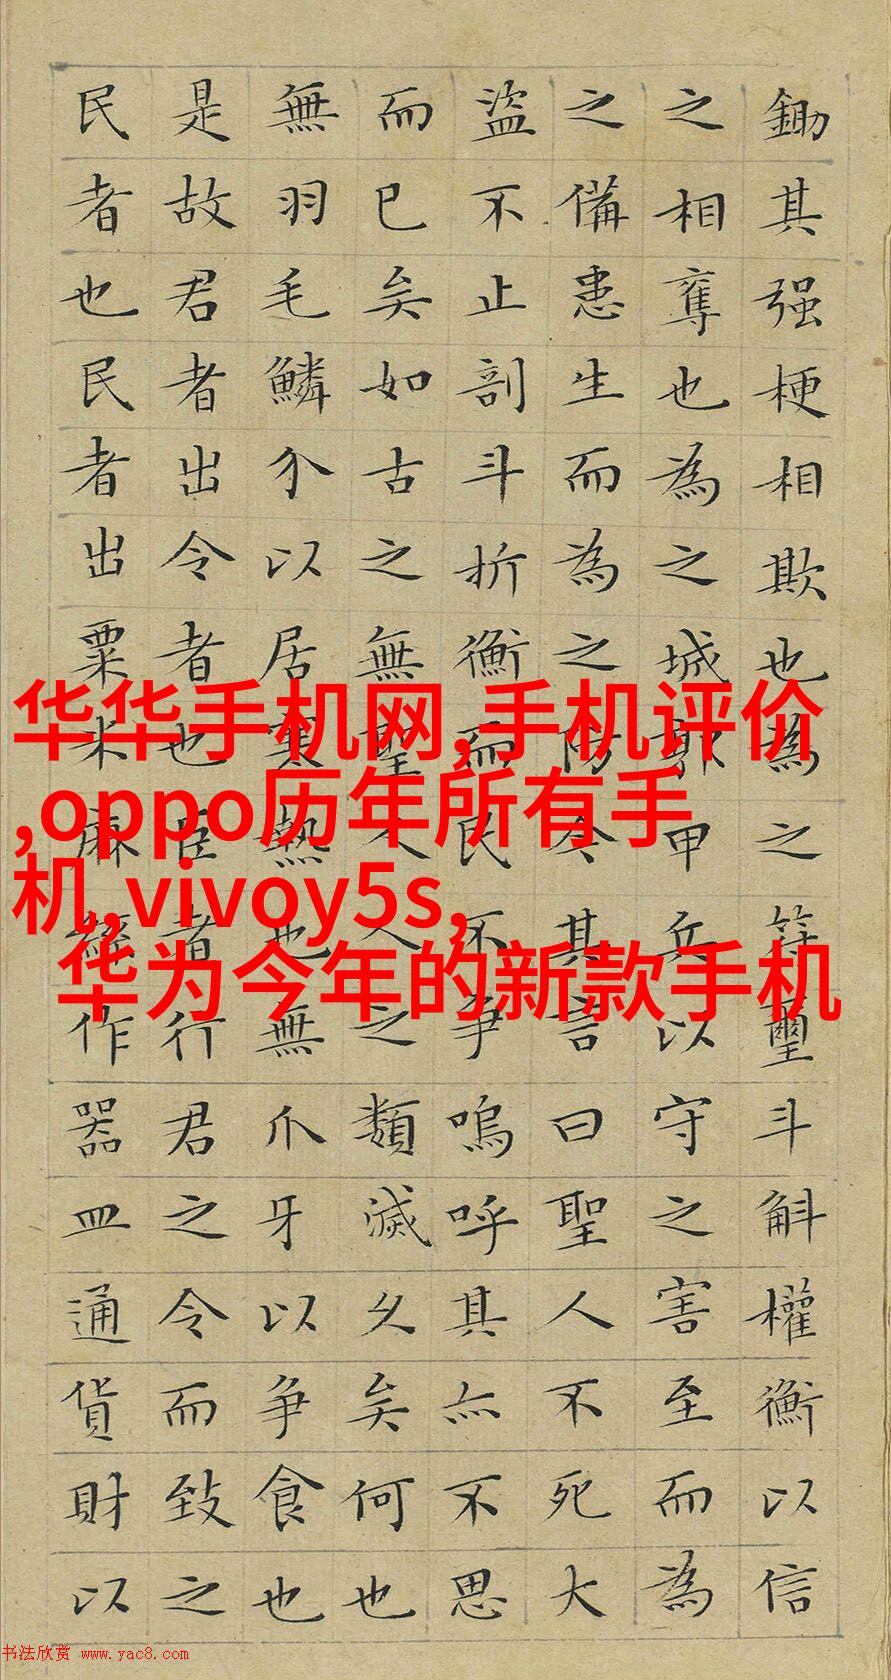 鋤其强梗相欺也為之符璽斗斛權衡以信
之相奪也為之城郭甲兵以守之害至而為
之備患生而為之防今其言曰聖人不死大
盜不止剖斗折衡而民不爭嗚呼其亦不思
而已矣如古之無聖人人之類滅久矣何也
無羽毛鱗介以居寒熱也無爪牙以爭食也
是故君者出令者也臣者行君之令而致之
民者也民者出粟米麻絲作器皿通貨財以
华华手机网,手机评价
,oppo历年所有手
机,vivoy5s,
华为今年的新款手机
书法欣赏 www.yac8.com